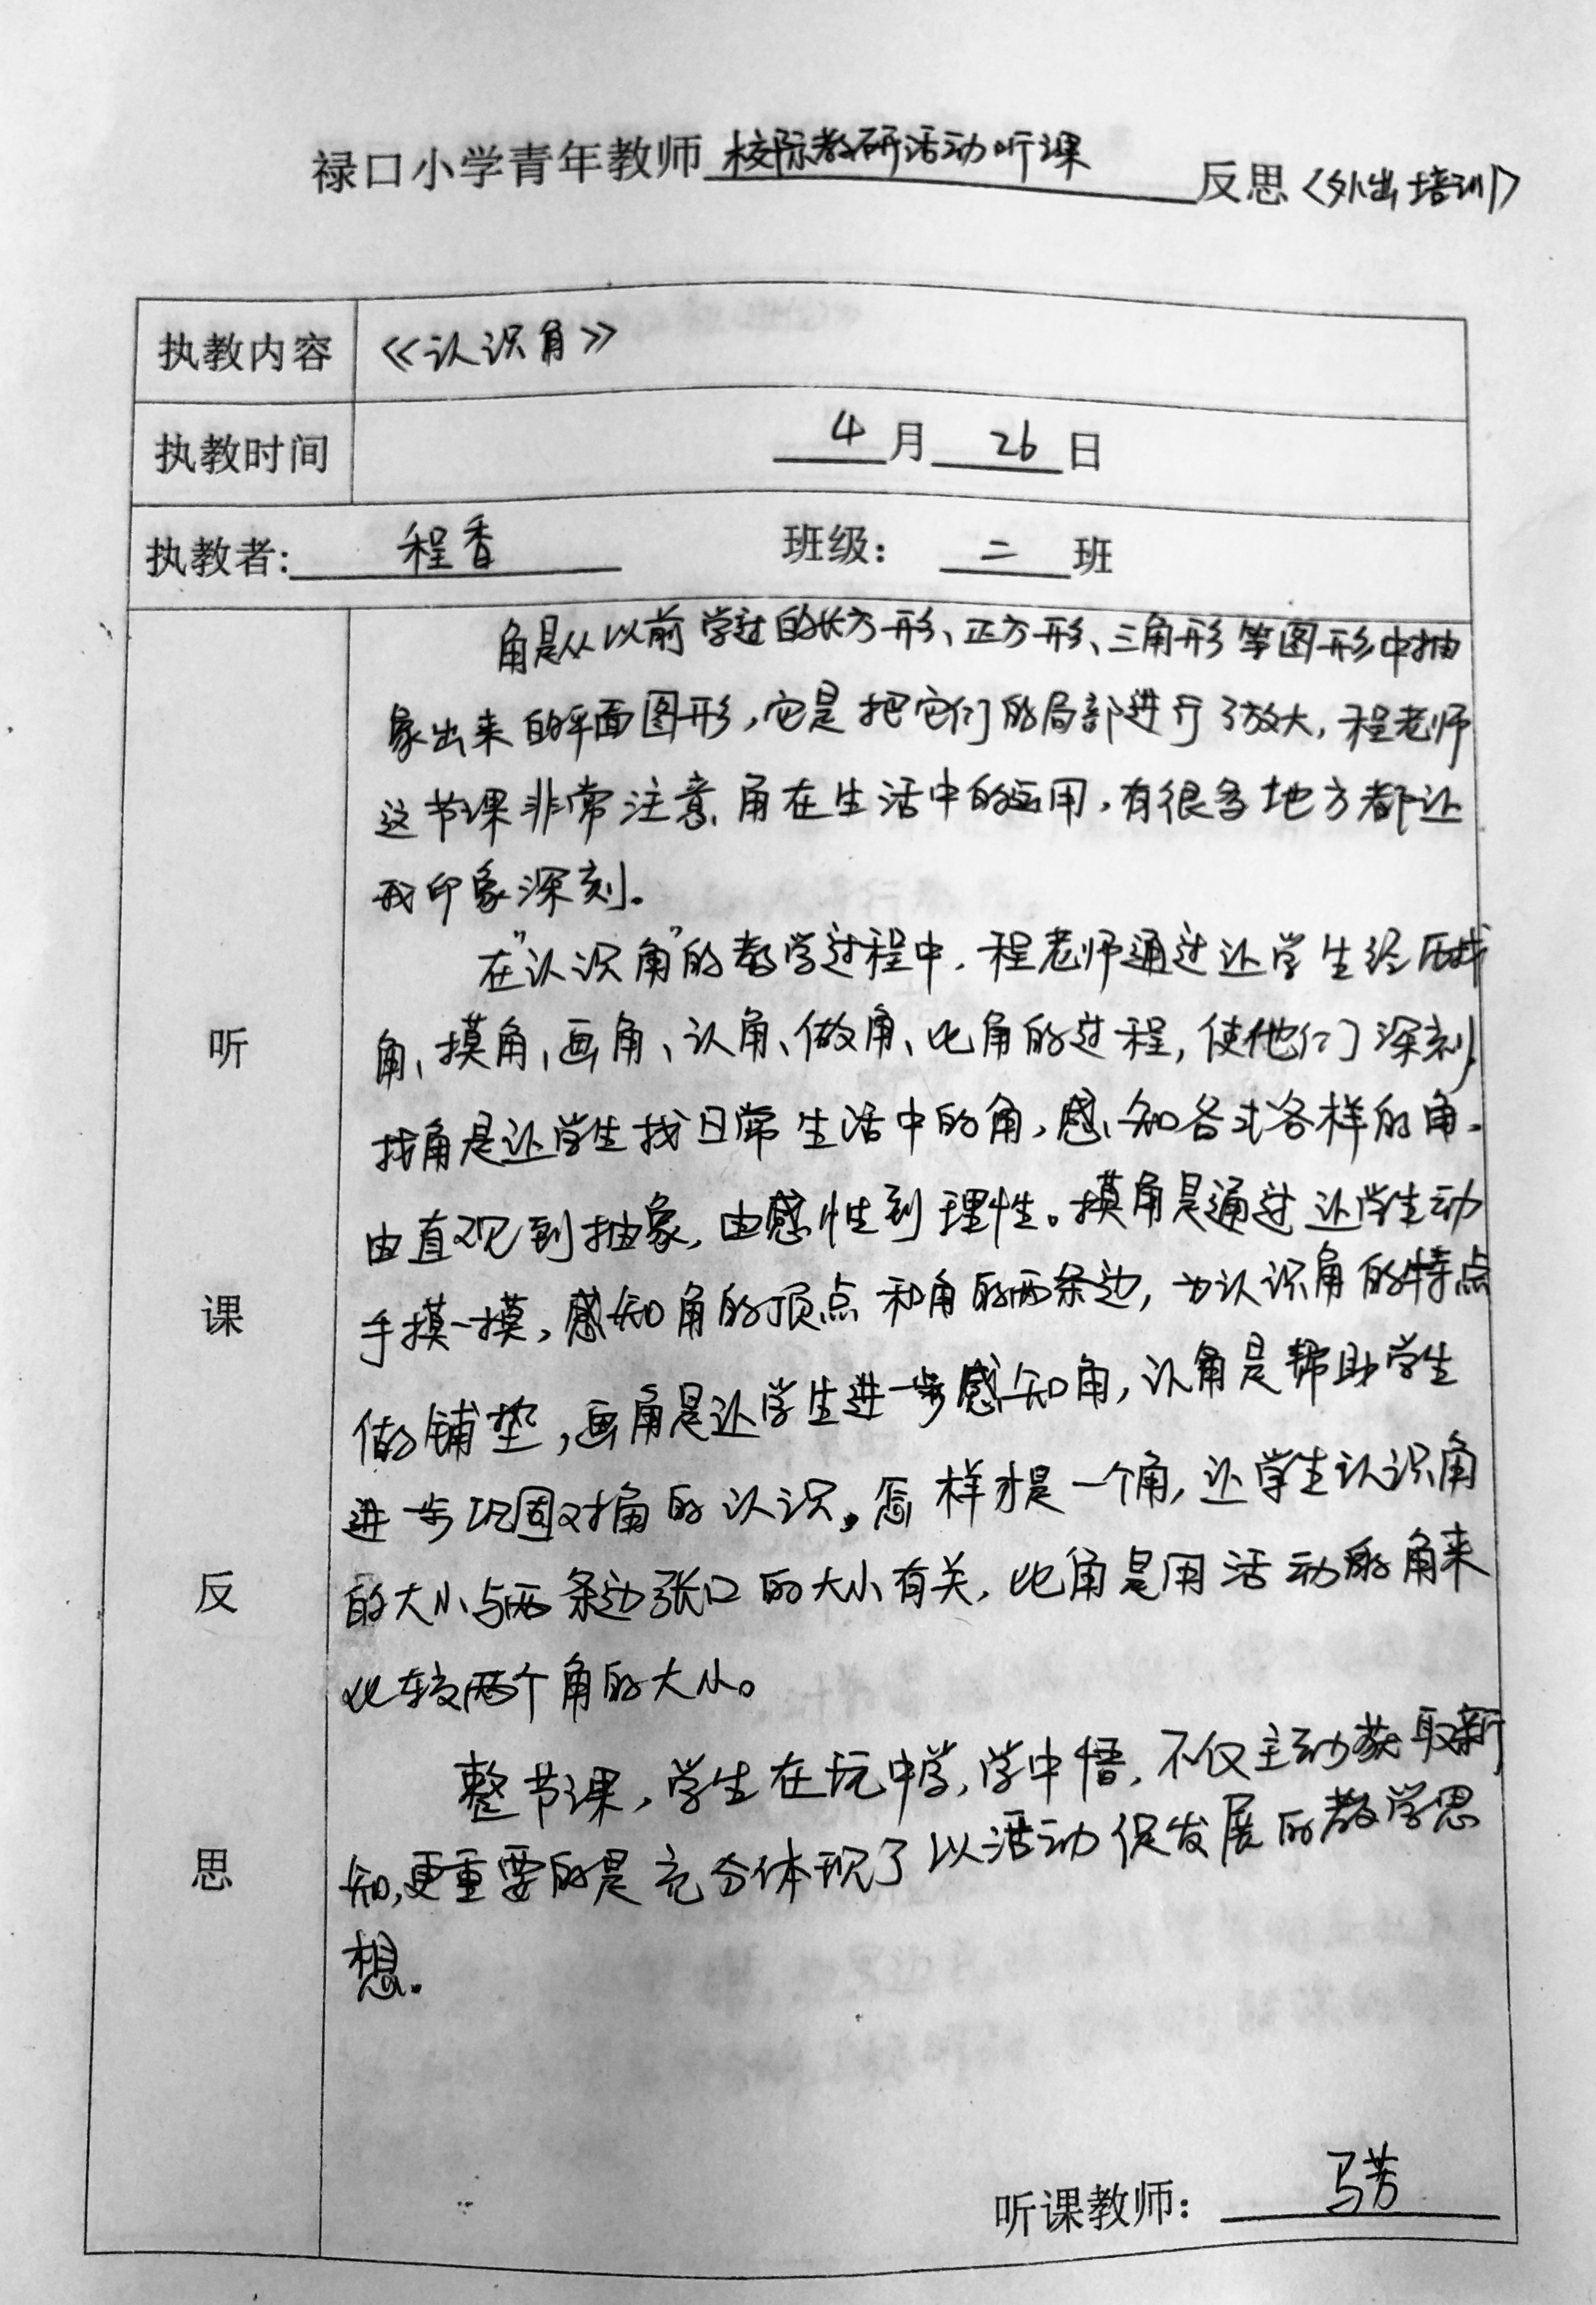 禄口小学青年教师校际教研活动听课反思〈外出培训〉
执教内容 《认识角》
执教时间 4月26日
执教者: 程香 班级: 二班
角是从以前学过的长方形、正方形、三角形等图形中抽
象出来的平面图形,它是把它们的局部进行了放大,程老师
这节课非常注意角在生活中的运用,有很多地方都让
我印象深刻。
在"认识角"的教学过程中,程老师通过让学生经历找
角、摸角、画角、认角、做角、比角的过程,使他们深刻,
找角是让学生找日常生活中的角,感知各式各样的角。
由直观到抽象,由感性到理性。摸角是通过让学生动
手摸一摸,感知角的顶点和角的两条边,为认识角的特点
做铺垫,画角是让学生进一步感知角,认角是帮助学生
进一步巩固对角的认识。怎样才是一个角,让学生认识角
的大小与两条边张口的大小有关,比角是用活动的角来
比较两个角的大小。
整节课,学生在玩中学,学中悟,不仅主动获取新
知,更重要的是充分体现了以活动促发展的教学思
想。
听
课
反
思
听课教师: 马芳